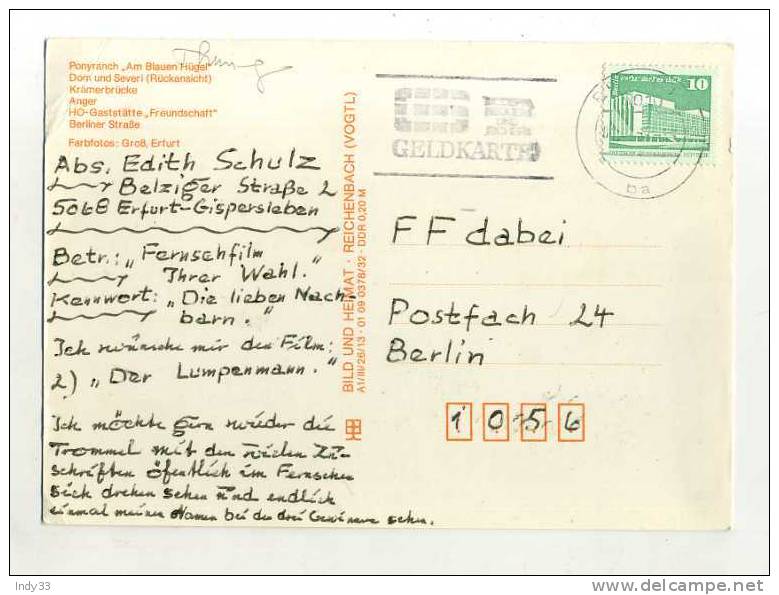 Ponyranch „Am Blauen Hügel"
Dom und Severi (Rückansicht)
Krämerbrücke
Anger
HO-Gaststätte „Freundschaft"
Berliner Straße
Farbfotos: Groß, Erfurt
Abs. Edith Schulz
Belziger Straße 2
5068 Erfurt-Gispersleben
Betr.: „Fernsehfilm
Ihrer Wahl."
Kennwort: „Die lieben Nach-
barn."
Ich wünsche mir den Film:
2) „Der Lumpenmann."
Ich möchte gern wieder die
Trommel mit den vielen Zu-
schriften öfentlich im Fernsehen
sich drehen sehen und endlich
einmal meinen Namen bei den drei Gewinnern sehen.
BILD UND HEIMAT · REICHENBACH (VOGTL)
A1/III/26/13 · 01 09 0378/32 · DDR 0,20 M
GELDKARTE
10
ba
FF dabei
Postfach 24
Berlin
1056
Indy33
delcampe.net